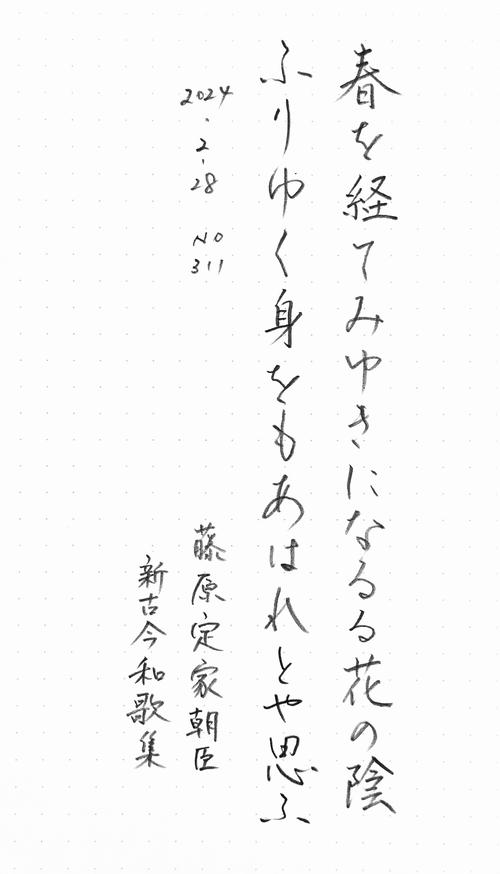 春を経てみゆきになるる花の陰
ふりゆく身をもあはれとや思ふ
2024・2・28 NO 311
藤原定家朝臣
新古今和歌集